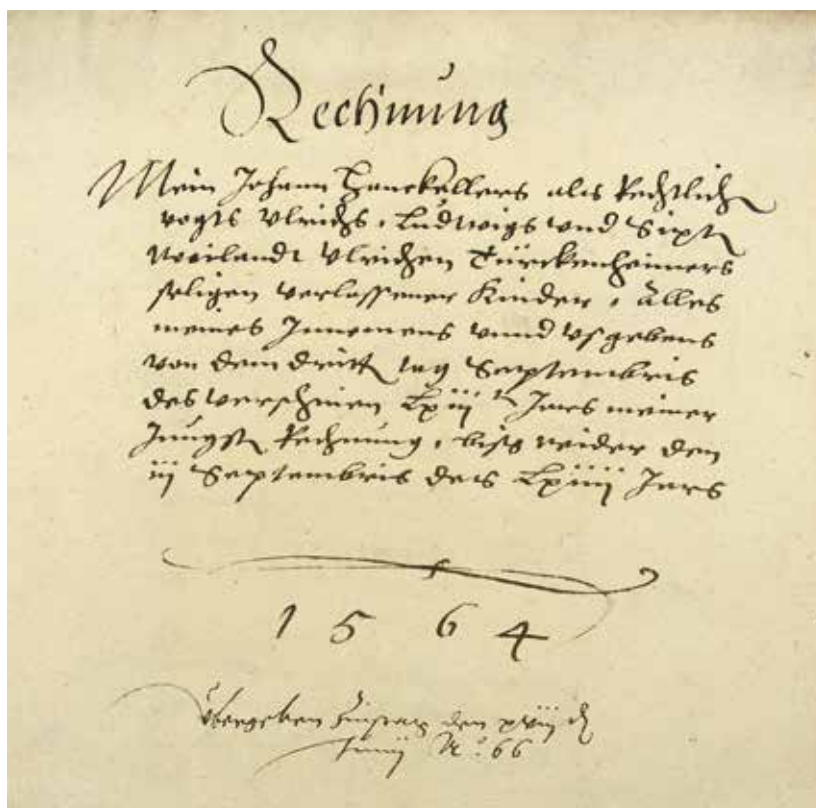 Rechnung
Mein Johann Hanckellers als Rechtlich
vogts Ulrichs, Ludwigs und Sixt
Weilandt Ulrichen Türckenheimers
seligen verlassener Kinder, alles
meines Innemens unnd usgebens
von dem dritt tag Septembris
des verschinen Lxiii Jars meiner
Jungst Rechnung, bis wider den
iii Septembris des Lxiiii Jars
1564
Übergeben Zinstag den xviii
Junii Ao 66